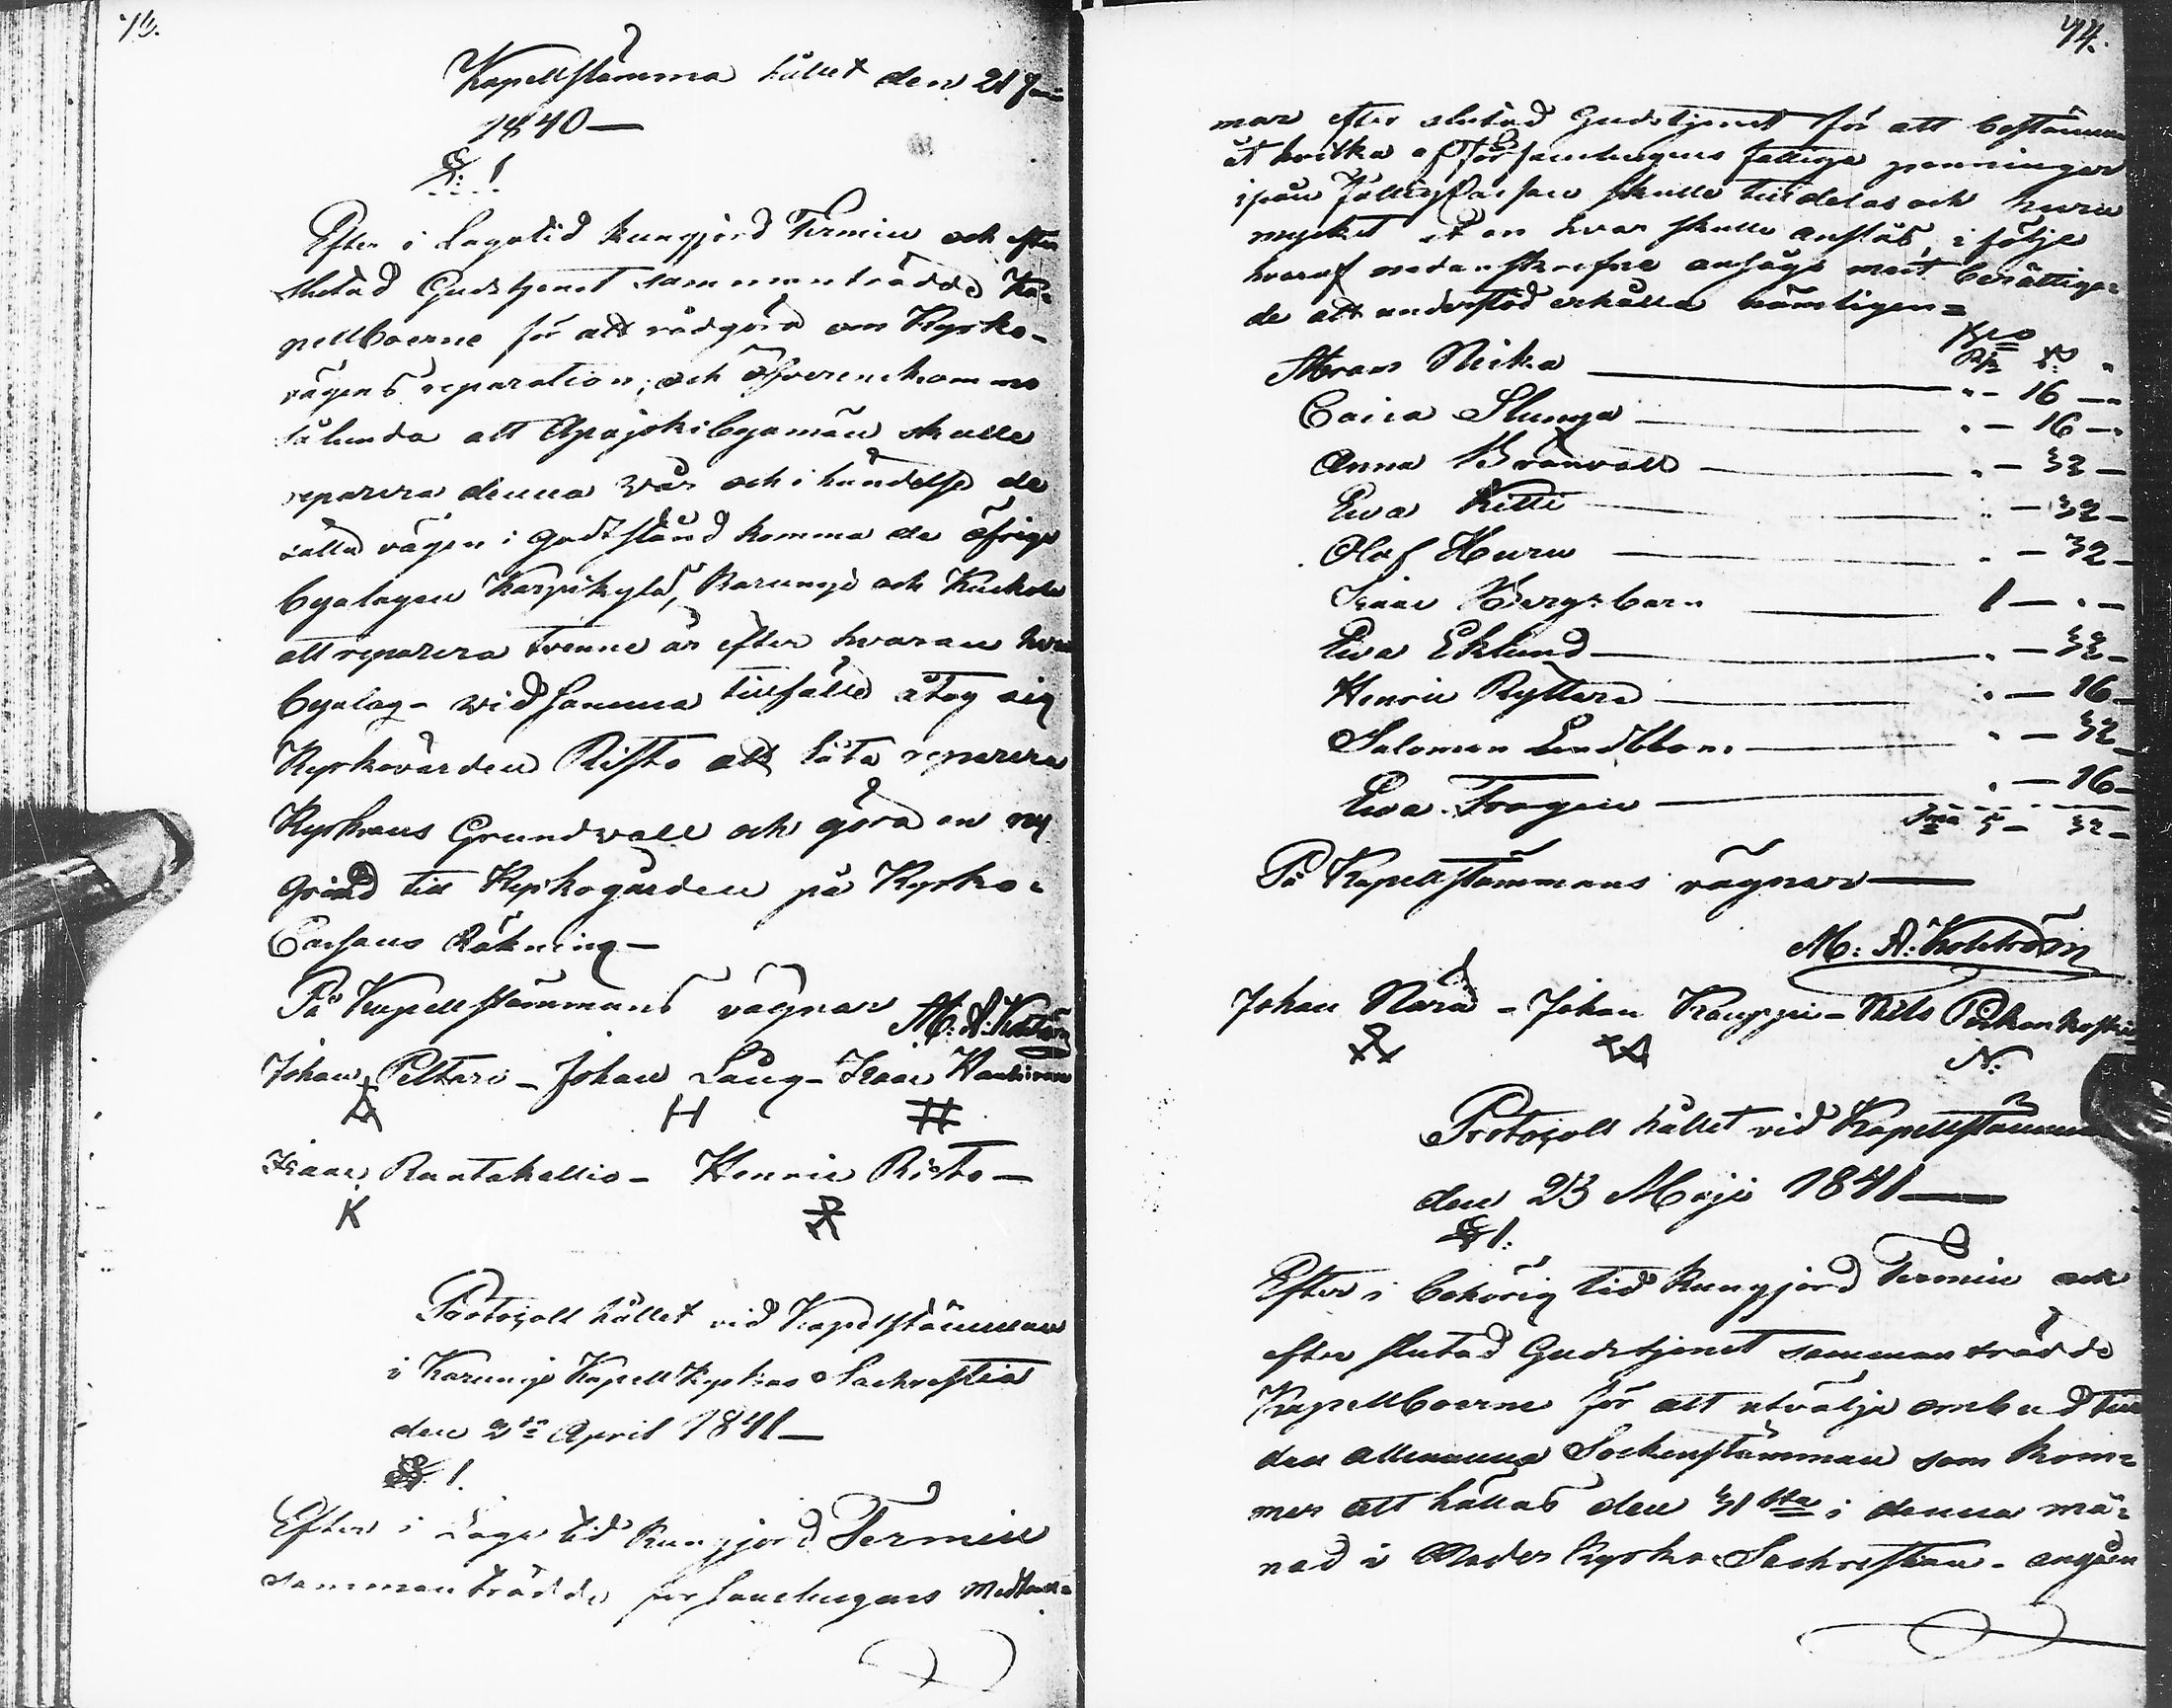 Kapellstämma hållet den 21 Juni
1840 —
§: 1
Efter i Lagatid kungjord Termin och efter
slutad Gudstjenst sammanträdde Ka-
pellboerne för att rådgöra om Kyrko-
vägens reparation; och öfverenskommo
sålunda att Apajoki byamän skulle
reparera denna Vår och i händelse de
sätta vägen i godt stånd komma de öfrige
byalagen Karpikylä, Karungi och Kuckola
att reparera trenne år efter hvaran hvar
byalag – vid samma tillfälle åtog sig
Kyrkovärden Risto att låta reparera
Kyrkans Grundvall och göra en ny
Grind till Kyrkogården på Kyrko-
Cassans Räkning –
På Kapellstämmans vägnar M: A: Kolström
Johan Peltari – Johan Lång – Isaac
H #
Isaac Rantakallio – Henric Risto –
K
Protocoll hållet vid Kapellstämman
i Karungi Kapell Kyrkas Sachristia
den 2dn April 1841 –
§ 1.
Efter i Laga tid kungjord Termin
sammanträdde församlingens medlem-
74.
mar efter slutad Gudstjenst för att bestämma
åt hvilka af Församlingens fattige penningar
ifrån Fattigcassan skulle tilldelas och huru
mycket åt en hvar skulle anslås, i följe
hvaraf nedanskrefne ansågs mest berättiga-
de att understöd erhålla nämligen =
Bco
Rdr s:
Abram Niska — 16 —
Caisa Slunga — 16 —
Anna Brännvall — 32 —
Ewa Kitti — 32 —
Olof Huru — 32 —
Isaac Bergsbarn 1 — " —
Ewa Eklund — 32 —
Henric Ryttare — 16 —
Salomon Lindblom — 32 —
Ewa Fragen — 16 —
Sma 5 – 32 –
På Kapellstämmans vägnar —
M: A: Kolström
Johan Nara – Johan Krauppi – Nils
N:
Protocoll hållet vid Kapellstämma
den 23 Maji 1841 —
§ 1:
Efter i behörig tid kungjord Termin och
efter slutad Gudstjenst sammanträdde
Kapellboerne för att utvälja ombud till
den allmänna Sockenstämman som kom-
mer att hållas den 31sta i denna må-
nad i Moder Kyrko Sachristian – angåen